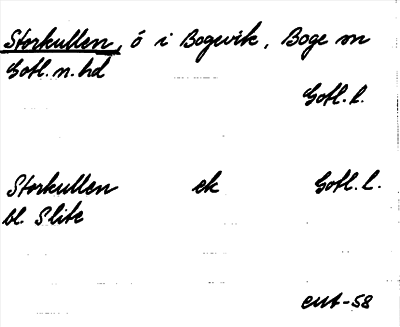 Storkullen, ö i Bogevik, Boge sn
Gotl. n. hd
Gotl. l.
Storkullen ek Gotl. l.
bl. Slite